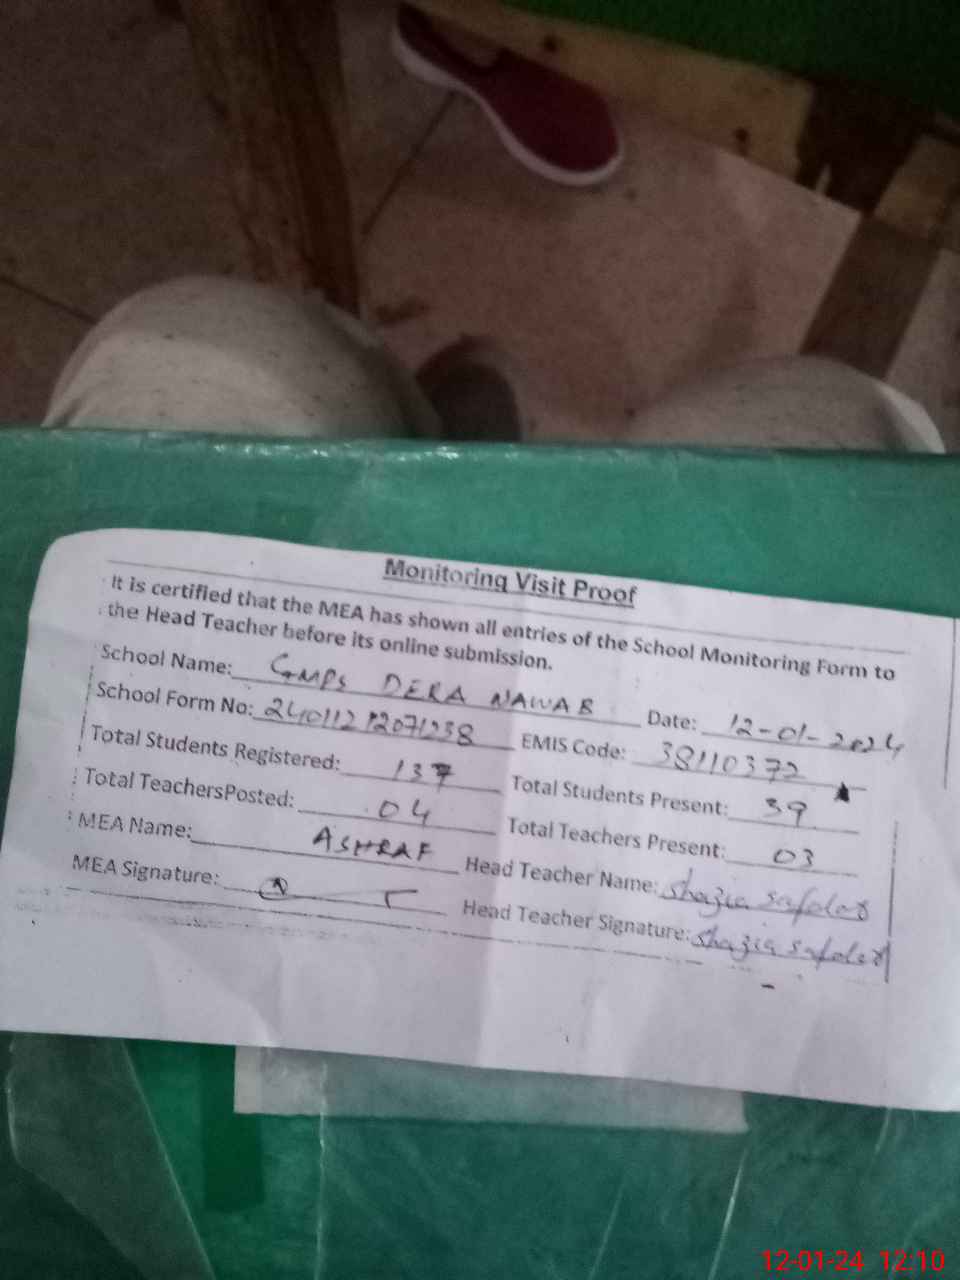 Monitoring Visit Proof
It is certified that the MEA has shown all entries of the School Monitoring Form to
the Head Teacher before its online submission.
School Name: GMPS DERA NAWAB Date: 12-01-2024
School Form No: 240112 12071238 EMIS Code: 38110372
Total Students Registered: 137 Total Students Present: 39
Total TeachersPosted: 04 Total Teachers Present: 03
MEA Name: ASHRAF Head Teacher Name: Shazia Safdar
MEA Signature: Head Teacher Signature: Shazia Safdar
12-01-24 12:10